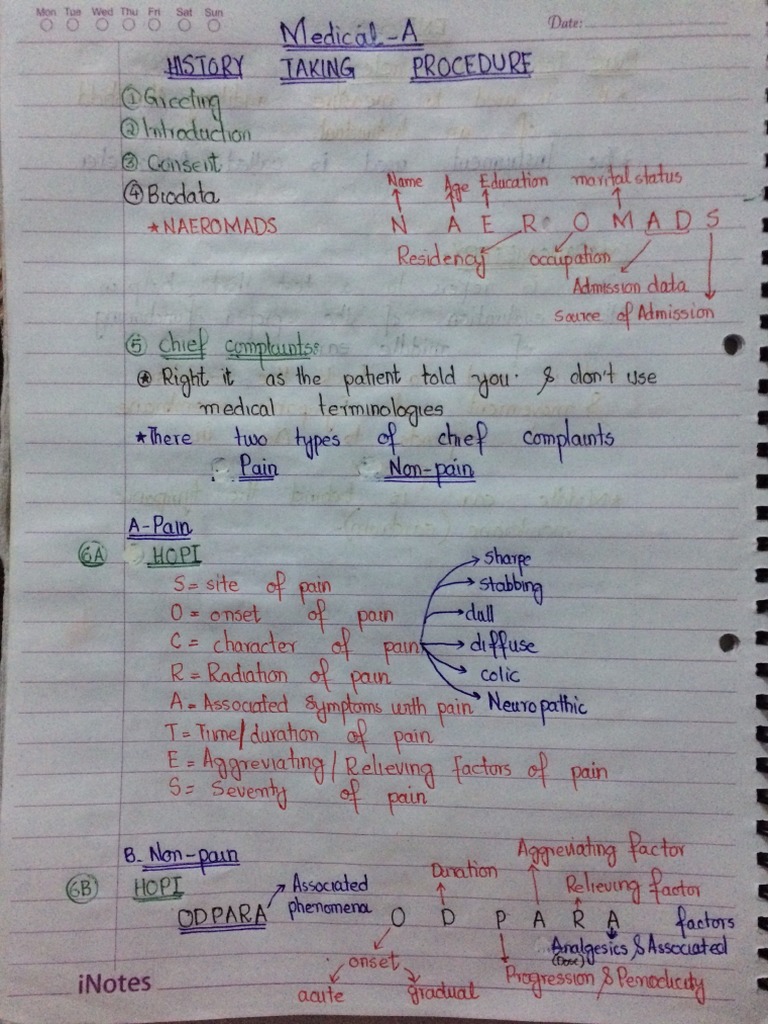 Mon Tue Wed Thu Fri Sat Sun
Date:
Medical-A
HISTORY TAKING PROCEDURE
① Greeting
② Introduction
③ Consent
④ Biodata
Name Age Education marital status
* NAEROMADS N A E R O M A D S
Residency occupation
Admission data
source of Admission
⑤ chief complaints:
Right it as the patient told you. & don't use
medical terminologies
* There two types of chief complaints
Pain Non-pain
A-Pain
6A HOPI
S = site of pain
O = onset of pain
C = character of pain
sharpe
stabbing
dull
diffuse
colic
Neuropathic
R = Radiation of pain
A = Associated symptoms with pain
T = Time/duration of pain
E = Aggreviating / Relieving factors of pain
S = Severity of pain
B. Non-pain
6B HOPI
ODPARA
Associated
phenomena
Aggreviating factor
Duration
Relieving factor
O D P A R A factors
Analgesics & Associated
(Dose)
onset
Progression & Periodicity
acute gradual
iNotes